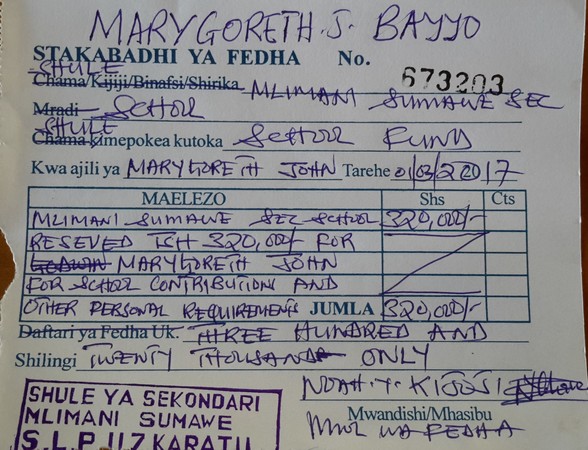 MARYGORETH. J. BAYYO
STAKABADHI YA FEDHA No. 673203
SHULE
Chama/Kijiji/Binafsi/Shirika MLIMANI SUMAWE SEC
Mradi SCHOOL
SHULE
Chama kimepokea kutoka SCHOOL FUND
Kwa ajili ya MARYGORETH JOHN Tarehe 01/03/2017
MAELEZO Shs Cts
MLIMANI SUMAWE SEC SCHOOL 320,000/-
RESEVED TSH 320,000/- FOR
GODWIN MARYGORETH JOHN
FOR SCHOOL CONTRIBUTIONS AND
OTHER PERSONAL REQUIREMENTS JUMLA 320,000/-
Daftari ya Fedha Uk. THREE HUNDRED AND
Shilingi TWENTY THOUSAND ONLY
NOAH. Y. KIJOJI
Mwandishi/Mhasibu
WA FEDHA
SHULE YA SEKONDARI
MLIMANI SUMAWE
S.L.P 117 KARATU